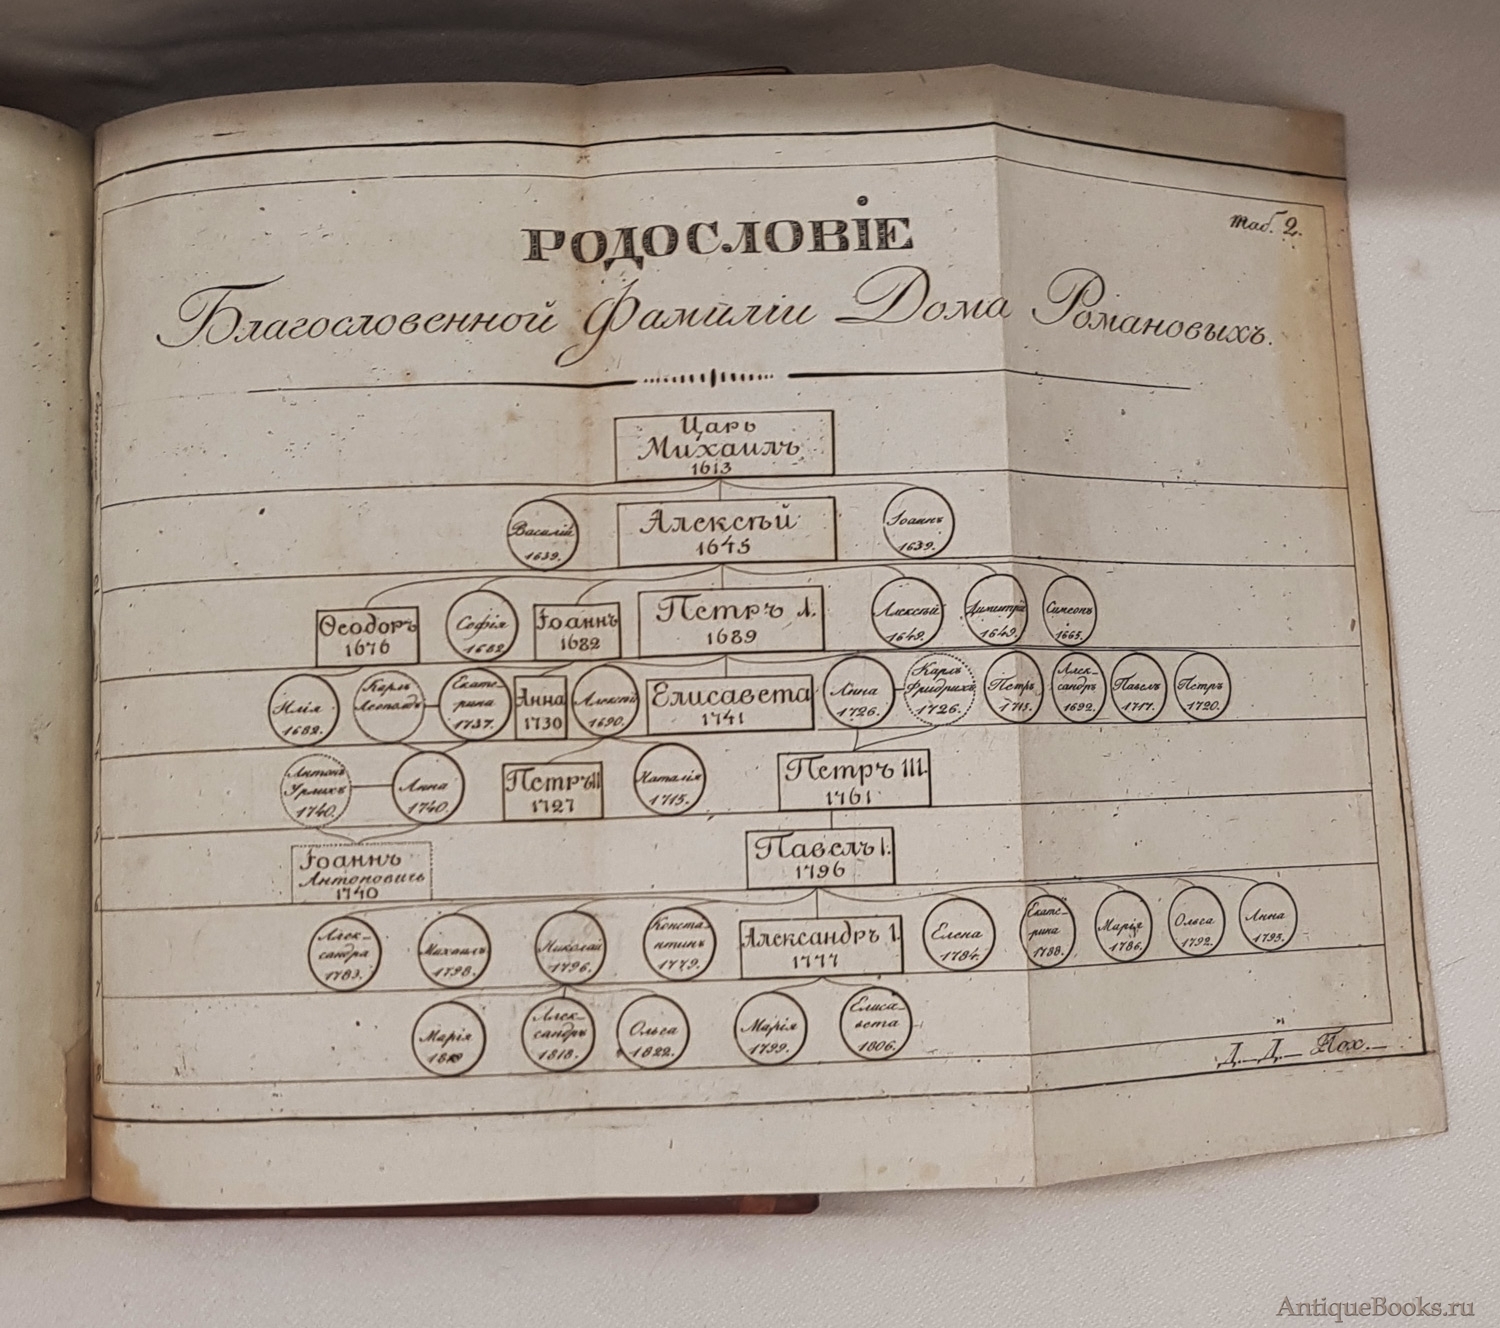 таб. 2.
РОДОСЛОВІЕ
Благословенной Фамиліи Дома Романовыхъ.
Царь
Михаилъ
1613
Василій
1639.
Алексѣй
1645
Іоаннъ
1639.
Ѳеодоръ
1676
Софія
1682
Іоаннъ
1682
Петръ I.
1689
Алексѣй
1649.
Димитрій
1649.
Симеонъ
1665.
Илія
1682.
Карлъ
Леопольдъ
Екате-
рина
1737.
Анна
1730
Алексѣй
1690.
Елисавета
1741
Анна
1726.
Карлъ
Фридрихъ
1726.
Петръ
1715.
Алек-
сандръ
1692.
Павелъ
1717.
Петръ
1720.
Антонъ
Урлихъ
1740.
Анна
1740.
Петръ II
1727
Наталія
1715.
Петръ III.
1761
Іоаннъ
Антоновичъ
1740
Павелъ I.
1796
Алек-
сандра
1783.
Михаилъ
1798.
Николай
1796.
Конста-
нтинъ
1779.
Александръ I.
1777
Елена
1784.
Екате-
рина
1788.
Марія
1786.
Ольга
1792.
Анна
1795.
Марія
1819
Алек-
сандръ
1818.
Ольга
1822.
Марія
1799.
Елиса-
вета
1806.
Д. Д. Пох.
AntiqueBooks.ru